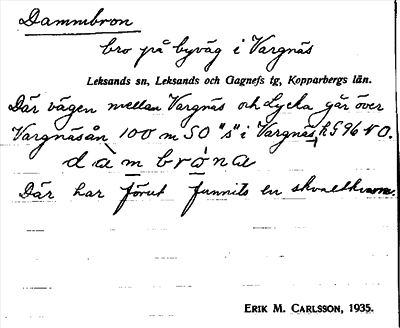 Dammbron
bro på byväg i Vargnäs
Leksands sn, Leksands och Gagnefs tg, Kopparbergs län.
Där vägen mellan Vargnäs och Lycka går över
Vargnäsån 100 m SO "s" i Vargnäs, h 596 NO.
dàmbróna
Där har förut funnits en skvaltkvarn.
ERIK M. CARLSSON, 1935.